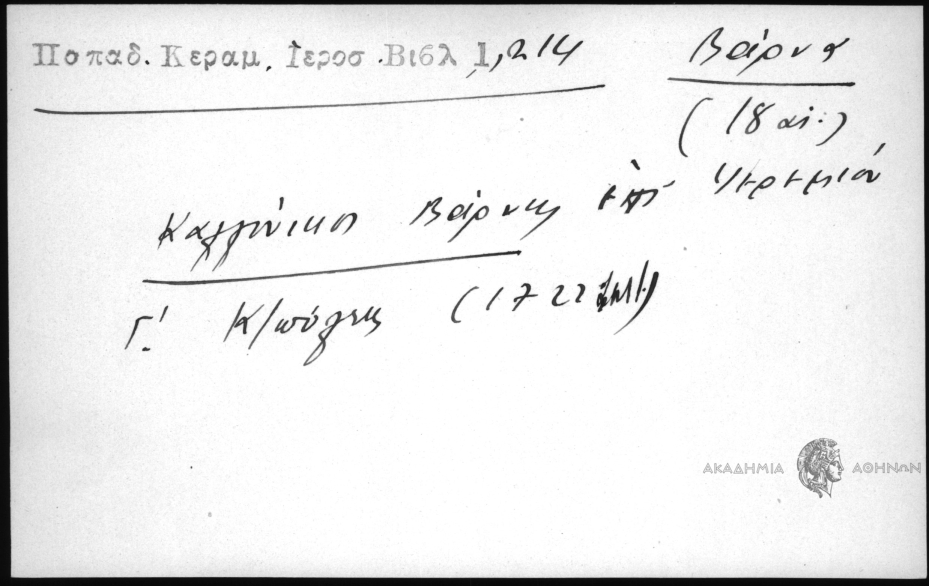 Παπαδ. Κεραμ. Ἱεροσ. Βιβλ 1, 214
Βάρνα
(18 αἰ.)
Καλλίνικος Βάρνης ἐπὶ Ἱερεμίου
Γ΄ Κ/πόλεως (1722
ΑΚΑΔΗΜΙΑ ΑΘΗΝΩΝ